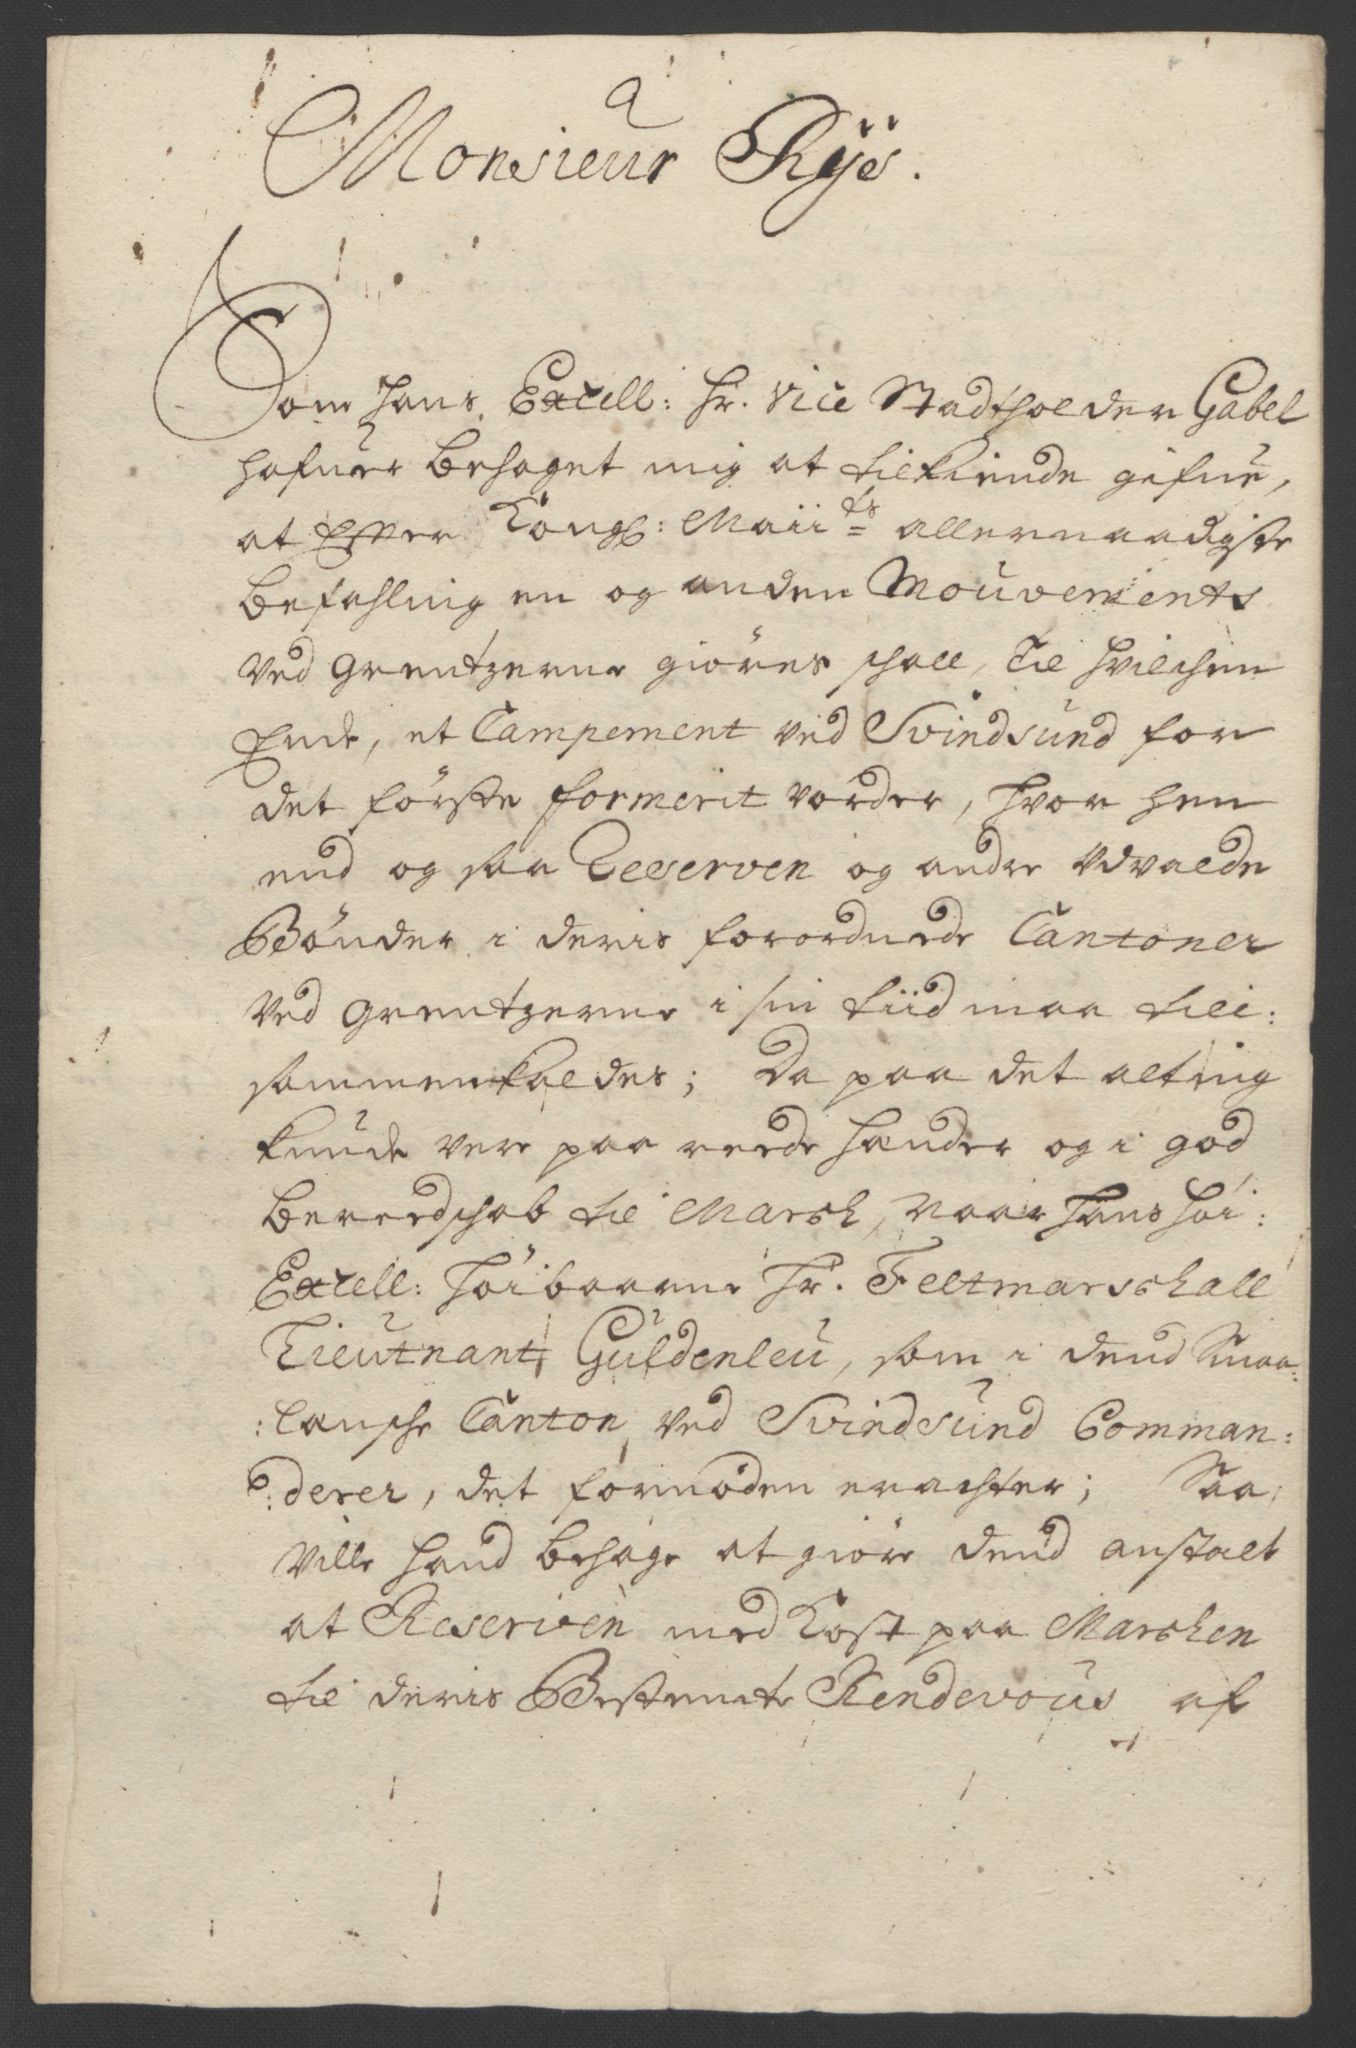 Monsieur Rÿes.
Som Hans Excell: Hr. Vice Stadtholder Gabel
hafuer behaget mig at tilkiende gifue,
at Efter Kongl: Maiits allernaadigste
befahling en og anden Mouvements
ved grentzerne giöres schall, til hvilchen
Ende, et Campement ved Svindsund for
det förste formerit vorder, hvor hen
end og saa Reserven og andre Udvalde
Bönder i deris forordnede Cantoner
ved grentzerne i sin tiid maa till:
sammenkaldes; Da paa det alting
kunde vere paa reede hænder og i god
bereedschab til Marsch, naar Hans höi:
Excell: Höibaarne Hr. Feltmarschall
Lieutnant Güldenleu, som i dend Smaa:
:lansche Canton ved Svindsund Comman:
:derer, det fornöden erachter; Saa
ville Hand behage at giöre dend anstalt
at Reserven med Kost paa Marschen
til deris Bestemte Rendevous af